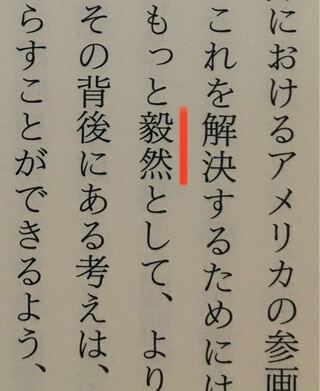 におけるアメリカの参画
これを解決するためには
もっと毅然として、より
その背後にある考えは、
らすことができるよう、